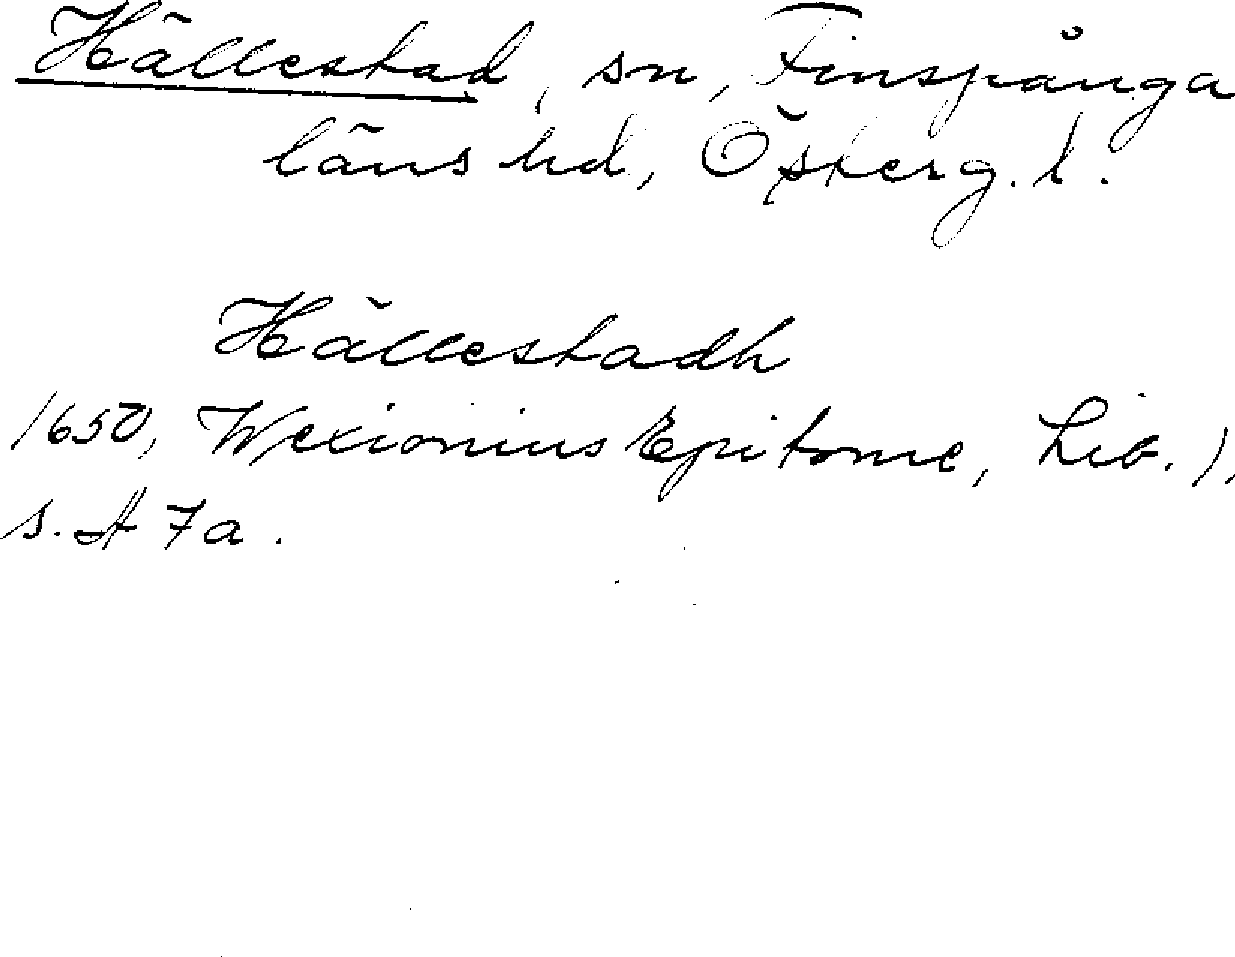 Hällestad, sn, Finspånga
läns hd, Österg. l.
Hällestadh
1650, Wexionius Epitome, Lib. 1,
s. A 7a.